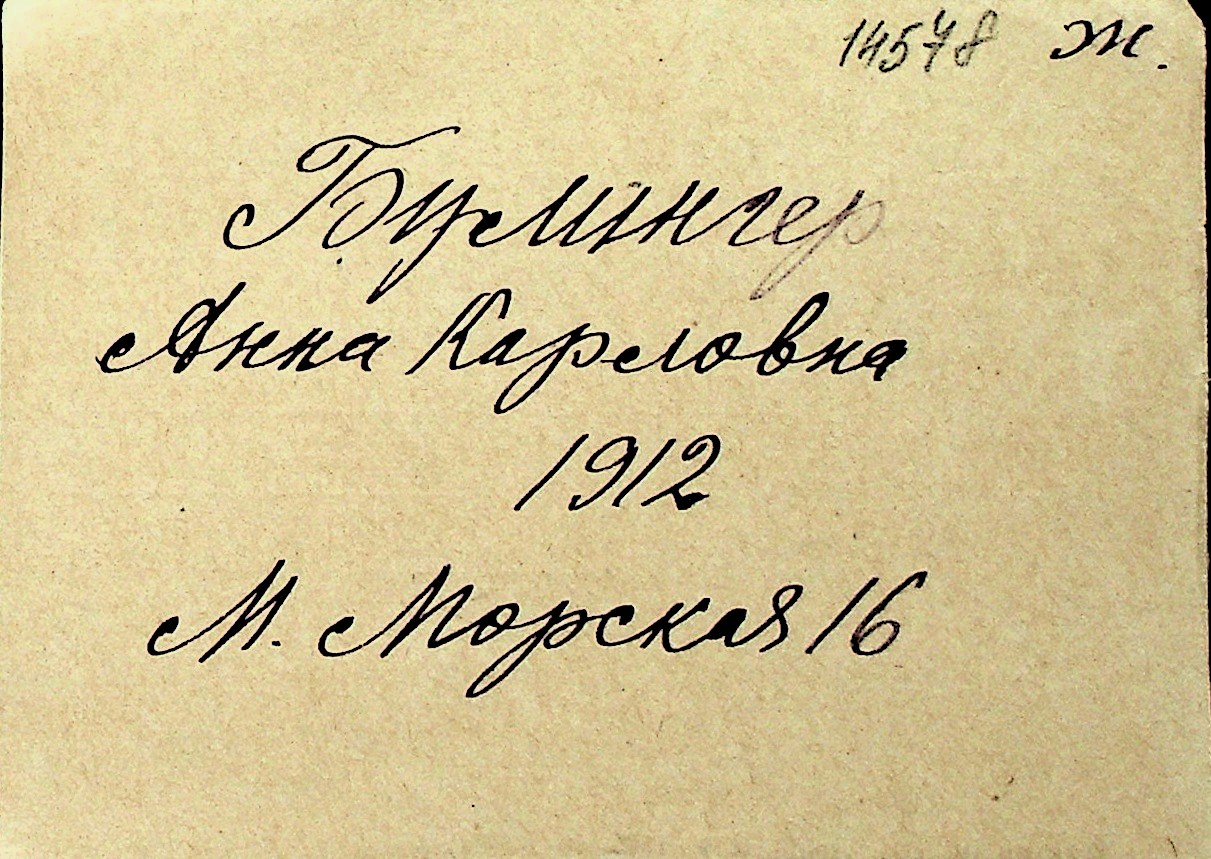 14578 ж.
Бумингер
Анна Карловна
1912
М. Морская 16